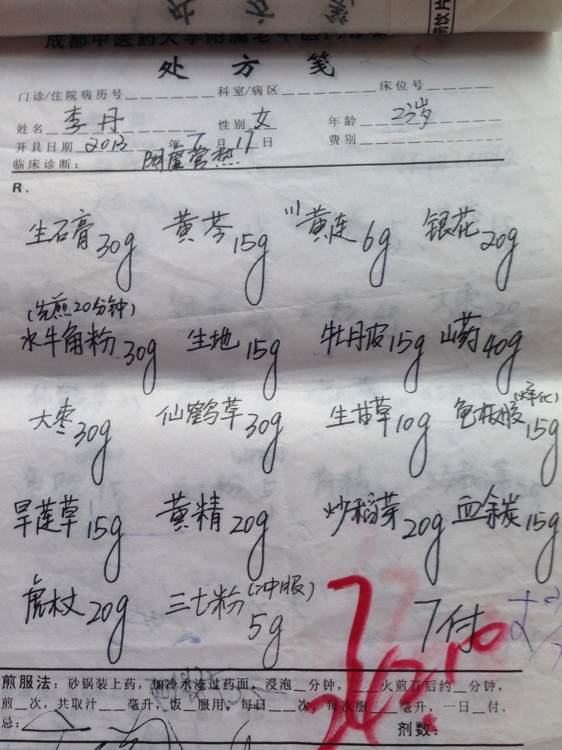 处方笺
门诊/住院病历号 科室/病区 床位号
姓名 李丹 性别 女 年龄 23岁
开具日期 2013 年 7 月 17 日 费别
临床诊断： 阴虚营热
R.
生石膏 30g 黄芩 15g 川黄连 6g 银花 20g
(先煎20分钟)
水牛角粉 30g 生地 15g 牡丹皮 15g 山药 40g
大枣 30g 仙鹤草 30g 生甘草 10g 龟板胶 (烊化) 15g
旱莲草 15g 黄精 20g 炒稻芽 20g 血余炭 15g
虎杖 20g 三七粉 (冲服) 5g 7付
煎服法：砂锅装上药，加冷水淹过药面，浸泡 分钟， 火煎开后约 分钟，
煎 次，共取汁 毫升，饭 服用，每日 次，每次服 毫升，一日 付。
忌： 剂数：